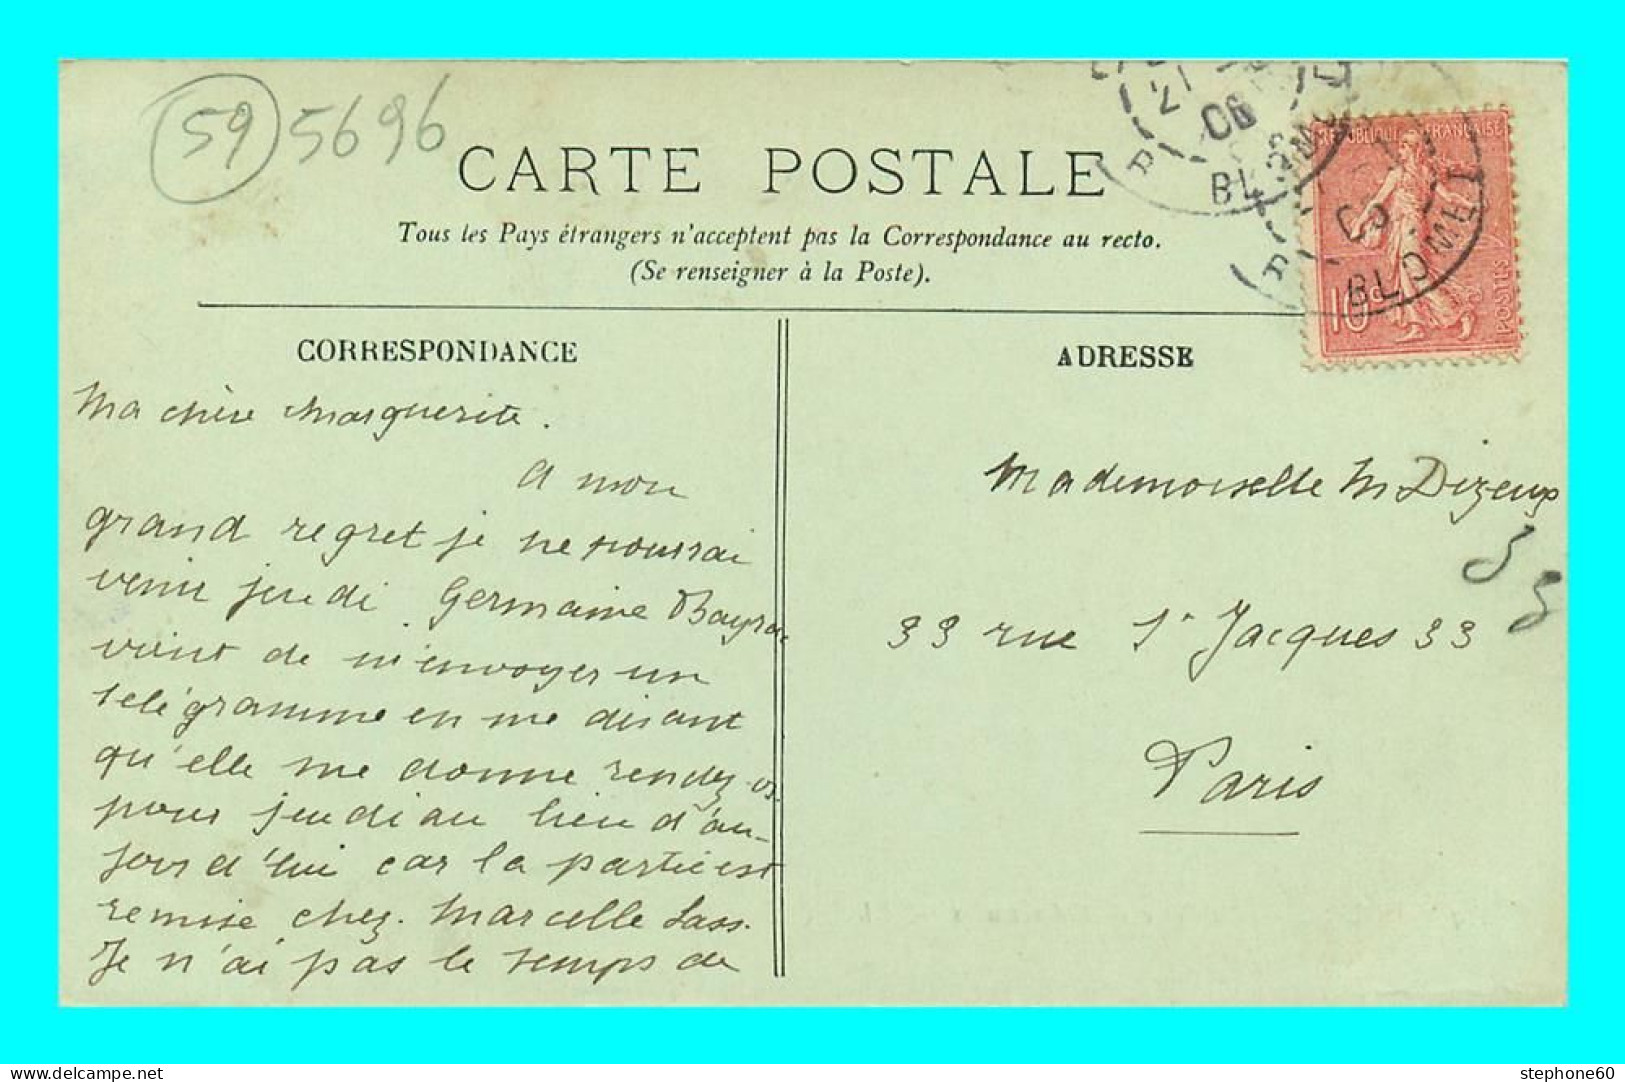 59 5696
CARTE POSTALE
Tous les Pays étrangers n'acceptent pas la Correspondance au recto.
(Se renseigner à la Poste).
21
06
BLOMET
BLOMET
REPUBLIQUE FRANÇAISE
10c
POSTES
CORRESPONDANCE
Ma chère Marguerite.
A mon
grand regret je ne pourrai
venir jeudi Germaine Bayrac
vient de m'envoyer un
télégramme en me disant
qu'elle me donne rendez-vs
pour jeudi au lieu d'au-
jourd'hui car la partie est
remise chez Marcelle Lass.
Je n'ai pas le temps de
ADRESSE
Mademoiselle M Dizeux
33 rue St Jacques 33
Paris
stephone60